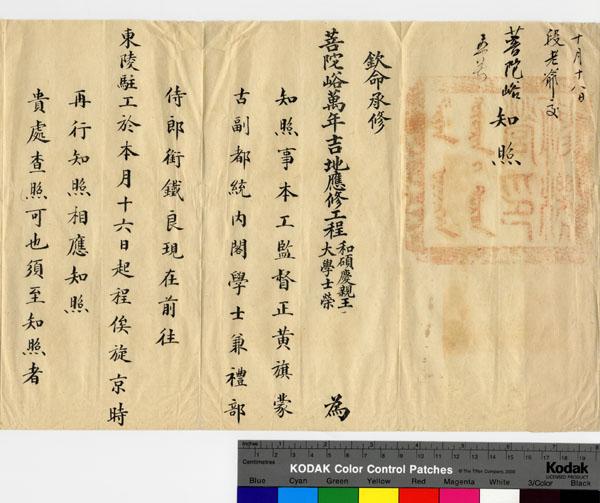 十月十八日
段老爺交
菩陀峪知照
欽命承修
菩陀峪萬年吉地應修工程和碩慶親王大學士榮 為
知照事本工監督正黃旗蒙
古副都統內閣學士兼禮部
侍郎銜鐵良現在前往
東陵駐工於本月十六日起程俟旋京時
再行知照相應知照
貴處查照可也須至知照者
Inches
Centimetres
KODAK Color Control Patches
© The Tiffen Company, 2000
Kodak
LICENSED PRODUCT
Blue Cyan Green Yellow Red Magenta White 3/Color Black